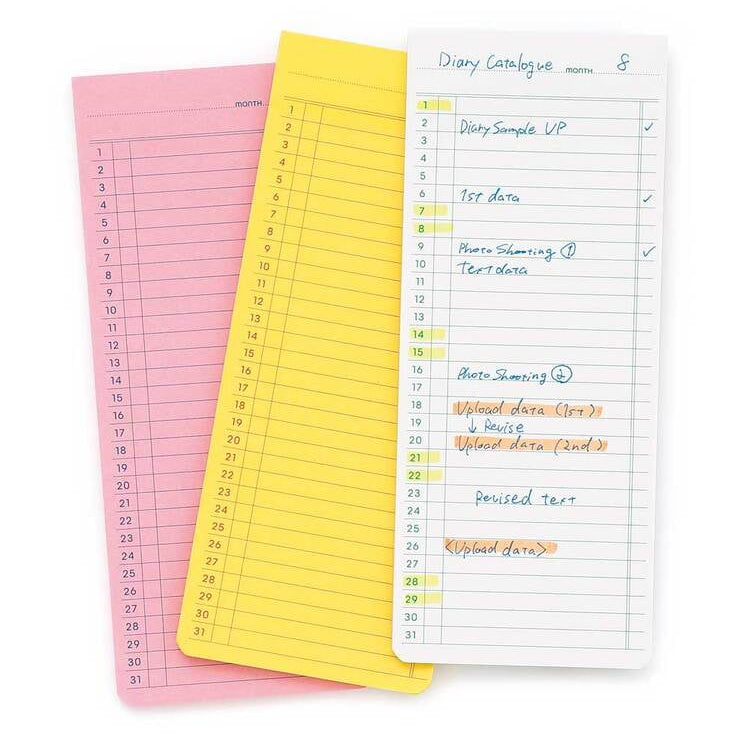 MONTH
1
2
3
4
5
6
7
8
9
10
11
12
13
14
15
16
17
18
19
20
21
22
23
24
25
26
27
28
29
30
31
1
2
3
4
5
6
7
8
9
10
11
12
13
14
15
16
17
18
19
20
21
22
23
24
25
26
27
28
29
30
31
Diary Catalogue MONTH 8
1
2 Diary Sample UP ✓
3
4
5
6 1st data ✓
7
8
9 Photo Shooting ① ✓
10 Text data
11
12
13
14
15
16 Photo Shooting ②
17
18 Upload data (1st)
19 ↓ Revise
20 Upload data (2nd)
21
22
23 Revised text
24
25
26 <Upload data>
27
28
29
30
31